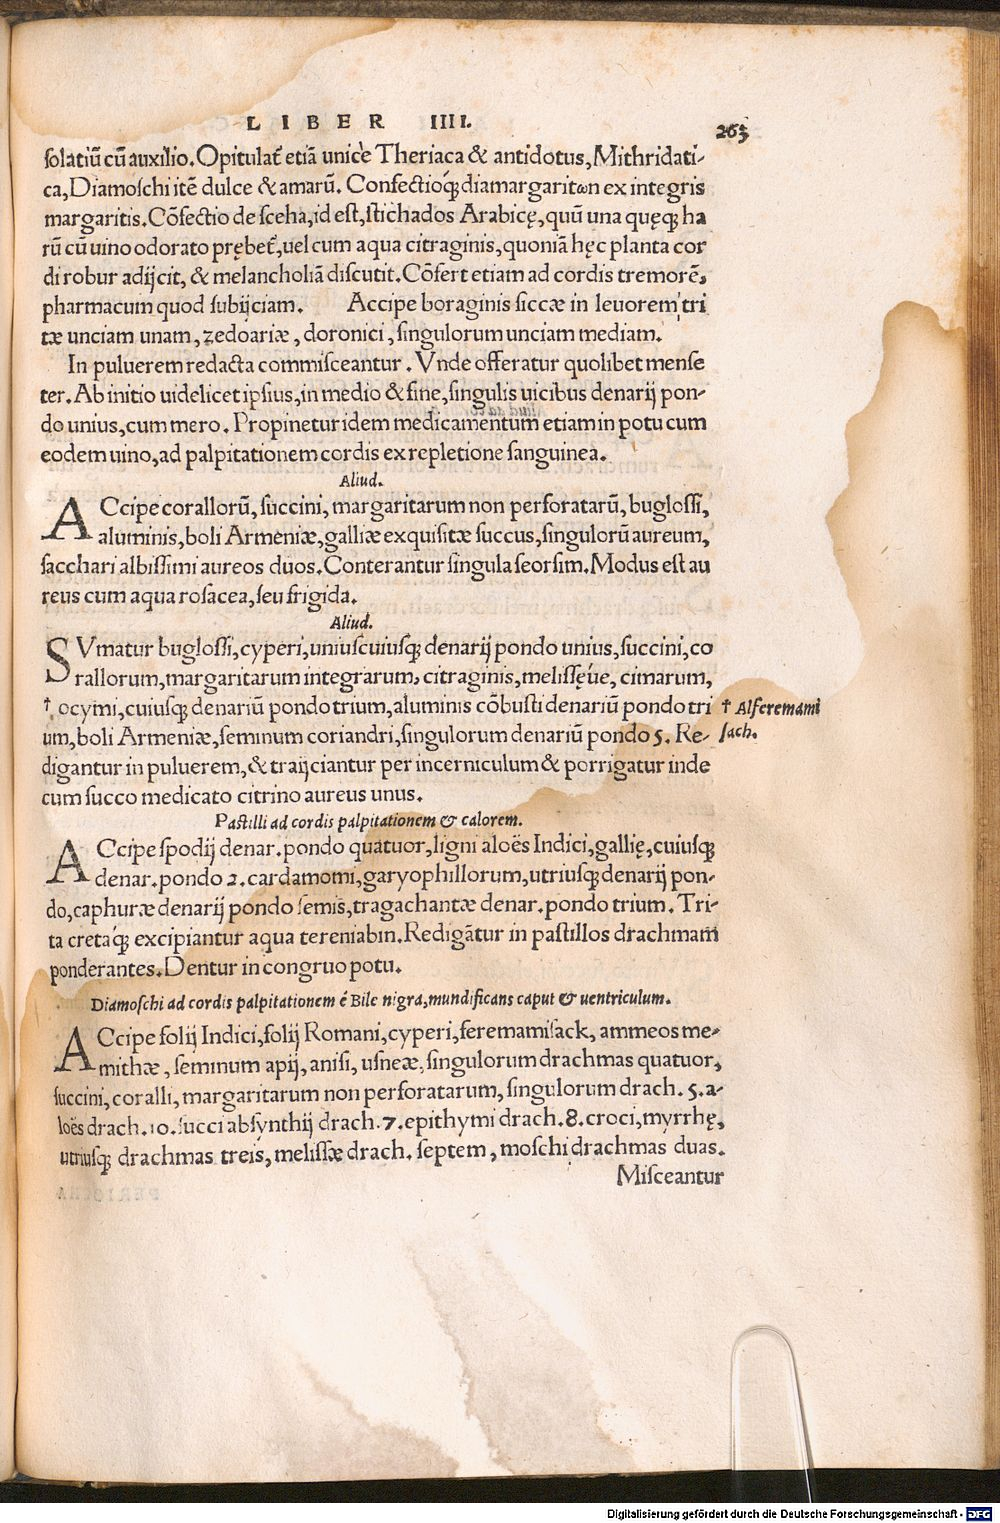 LIBER IIII. 263
solatiũ cũ auxilio. Opitulat̃ etiã unicè Theriaca & antidotus, Mithridati-
ca, Diamoschi itẽ dulce & amarũ. Confectioq́ꝫ diamargaritωn ex integris
margaritis. Cõfectio de sceha, id est, stichados Arabicę, quũ una quęqꝫ ha
rũ cũ uino odorato prębet̃, uel cum aqua citraginis, quoniã hęc planta cor
di robur adijcit, & melancholiã discutit. Cõfert etiam ad cordis tremorẽ,
pharmacum quod subijciam. Accipe boraginis siccæ in leuorem tri
tæ unciam unam, zedoariæ, doronici, singulorum unciam mediam.
In puluerem redacta commisceantur. Vnde offeratur quolibet mense
ter. Ab initio uidelicet ipsius, in medio & fine, singulis uicibus denarij pon-
do unius, cum mero. Propinetur idem medicamentum etiam in potu cum
eodem uino, ad palpitationem cordis ex repletione sanguinea.
Aliud.
ACcipe corallorũ, succini, margaritarum non perforatarũ, buglossi,
aluminis, boli Armeniæ, galliæ exquisitæ succus, singulorũ aureum,
sacchari albissimi aureos duos. Conterantur singula seorsim. Modus est au
reus cum aqua rosacea, seu frigida.
Aliud.
SVmatur buglossi, cyperi, uniuscuiusqꝫ denarij pondo unius, succini, co
rallorum, margaritarum integrarum, citraginis, melissęúe, cimarum,
† ocymi, cuiusqꝫ denariũ pondo trium, aluminis cõbusti denariũ pondo tri
um, boli Armeniæ, seminum coriandri, singulorum denariũ pondo 5. Re-
digantur in puluerem, & traijciantur per incerniculum & porrigatur inde
cum succo medicato citrino aureus unus.
† Alferemami
sach.
Pastilli ad cordis palpitationem & calorem.
ACcipe spodij denar. pondo quatuor, ligni aloës Indici, gallię, cuiusqꝫ
denar. pondo 2. cardamomi, garyophillorum, utriusqꝫ denarij pon-
do, caphuræ denarij pondo semis, tragachantæ denar. pondo trium. Tri-
ta cretaq́ꝫ excipiantur aqua tereniabin. Redigãtur in pastillos drachmam
ponderantes. Dentur in congruo potu.
Diamoschi ad cordis palpitationem è Bile nigra, mundificans caput & uentriculum.
ACcipe folij Indici, folij Romani, cyperi, feremamisack, ammeos me-
mithæ, seminum apij, anisi, usneæ, singulorum drachmas quatuor,
succini, coralli, margaritarum non perforatarum, singulorum drach. 5. a-
loës drach. 10. succi absynthij drach. 7. epithymi drach. 8. croci, myrrhę,
utriusqꝫ drachmas treis, melissæ drach. septem, moschi drachmas duas.
Misceantur
Digitalisierung gefördert durch die Deutsche Forschungsgemeinschaft - DFG